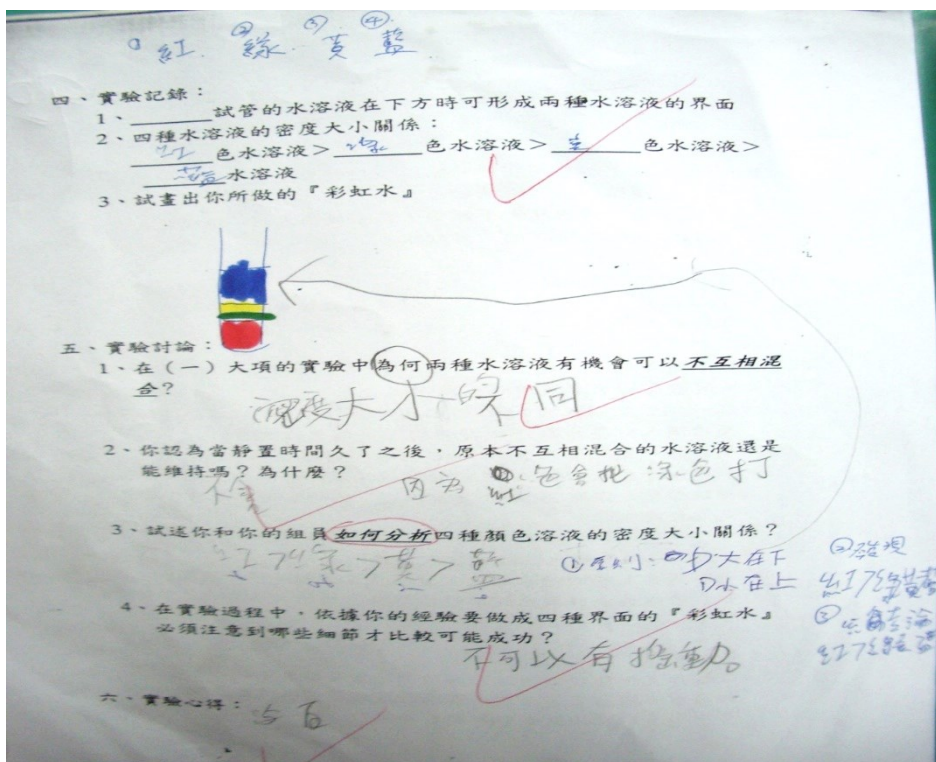 ① 紅. ② 綠. ③ 黃 ④ 藍.
四、實驗記錄：
1、______試管的水溶液在下方時可形成兩種水溶液的界面
2、四種水溶液的密度大小關係：
紅 色水溶液＞ 綠 色水溶液＞ 黃 色水溶液＞
藍 水溶液
3、試畫出你所做的『彩虹水』
五、實驗討論：
1、在（一）大項的實驗中為何兩種水溶液有機會可以不互相混
合？
密度大小的不同
2、你認為當靜置時間久了之後，原本不互相混合的水溶液還是
能維持嗎？為什麼？
不會 因為 紅色會把 色打
3、試述你和你的組員如何分析四種顏色溶液的密度大小關係？
紅>綠>黃>藍 ①原則: D大在下
D小在上
②發現
紅>綠黃藍
③
4、在實驗過程中，依據你的經驗要做成四種界面的『彩虹水』
必須注意到哪些細節才比較可能成功？
不可以有搖動。
六、實驗心得：